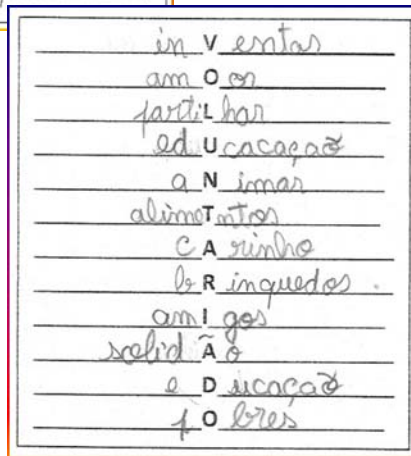 in V entar
am O or
parti L har
ed U cacação
a N imar
alime T ntos
c A rinho
b R inquedos
am I gos
solid Ã o
e D ucação
p O bres